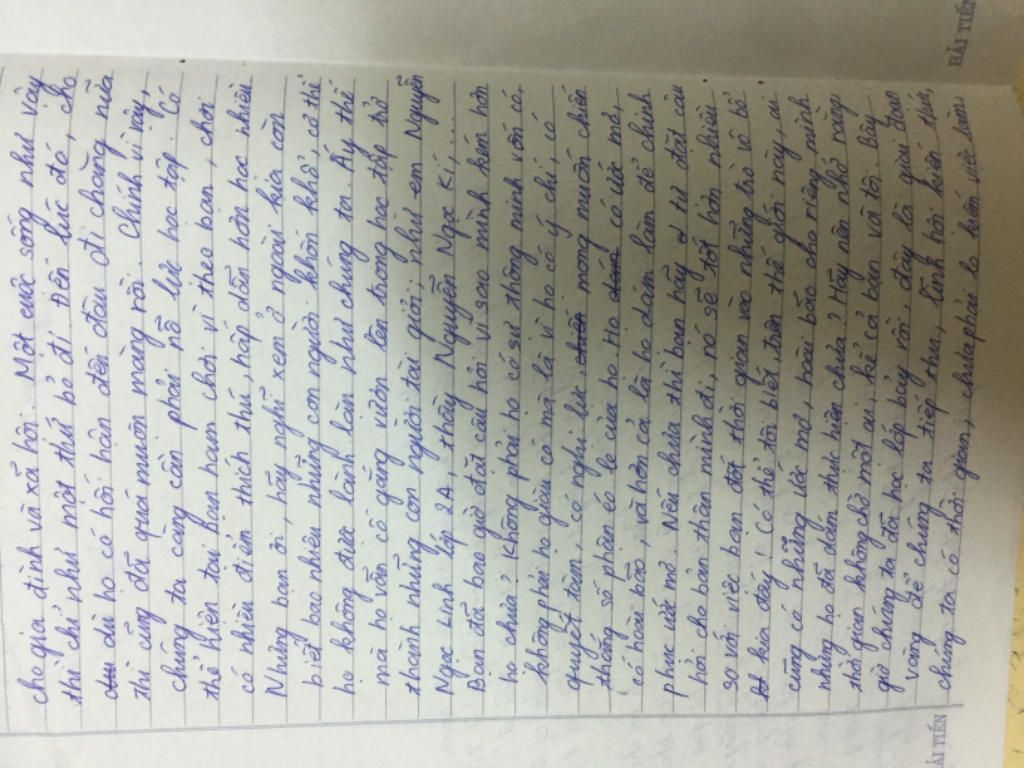 cho gia đình và xã hội. Một cuộc sống như vậy
thì chỉ như một thứ bỏ đi. Đến lúc đó, cho
dù họ có hối hận đến đâu đi chăng nữa
thì cũng đã quá muộn màng rồi. Chính vì vậy,
chúng ta càng cần phải nỗ lực học tập. Có
thể hiện tại bạn ham chơi vì theo bạn, chơi
có nhiều điểm thích thú, hấp dẫn hơn học nhiều
Nhưng bạn ơi, hãy nghĩ xem ở ngoài kia còn
biết bao nhiêu những con người khốn khổ, cơ thể
họ không được lành lặn như chúng ta. Ấy thế
mà họ vẫn cố gắng vươn lên trong học tập trở
thành những con người tài giỏi; như em Nguyễn
Ngọc Linh lớp 2A, thầy Nguyễn Ngọc Kí,...
Bạn đã bao giờ đặt câu hỏi vì sao mình kém hơn
họ chưa? Không phải họ có sự thông minh vốn có,
không phải họ giàu có mà là vì họ có ý chí, có
quyết tâm, có nghị lực, mong muốn chiến
thắng số phận éo le của họ. Họ có ước mơ,
có hoài bão, và hơn cả là họ dám làm để chinh
phục ước mơ. Nếu chưa thì bạn hãy tự đặt câu
hỏi cho bản thân mình đi, nó sẽ tốt hơn nhiều
so với việc bạn đốt thời gian vào những trò vô bổ
kia đấy! Có thể tôi biết, trên thế giới này, ai
cũng có những ước mơ, hoài bão cho riêng mình
nhưng họ đã dám thực hiện chưa? Hãy nên nhớ rằng
thời gian không chờ một ai, kể cả bạn và tôi. Bây
giờ chúng ta đã học lớp bảy rồi, đây là giai đoạn
vàng để chúng ta tiếp thu, lĩnh hội kiến thức,
chúng ta có thời gian, chưa phải lo kiếm việc làm
HẢI TIẾN
HẢI TIẾN